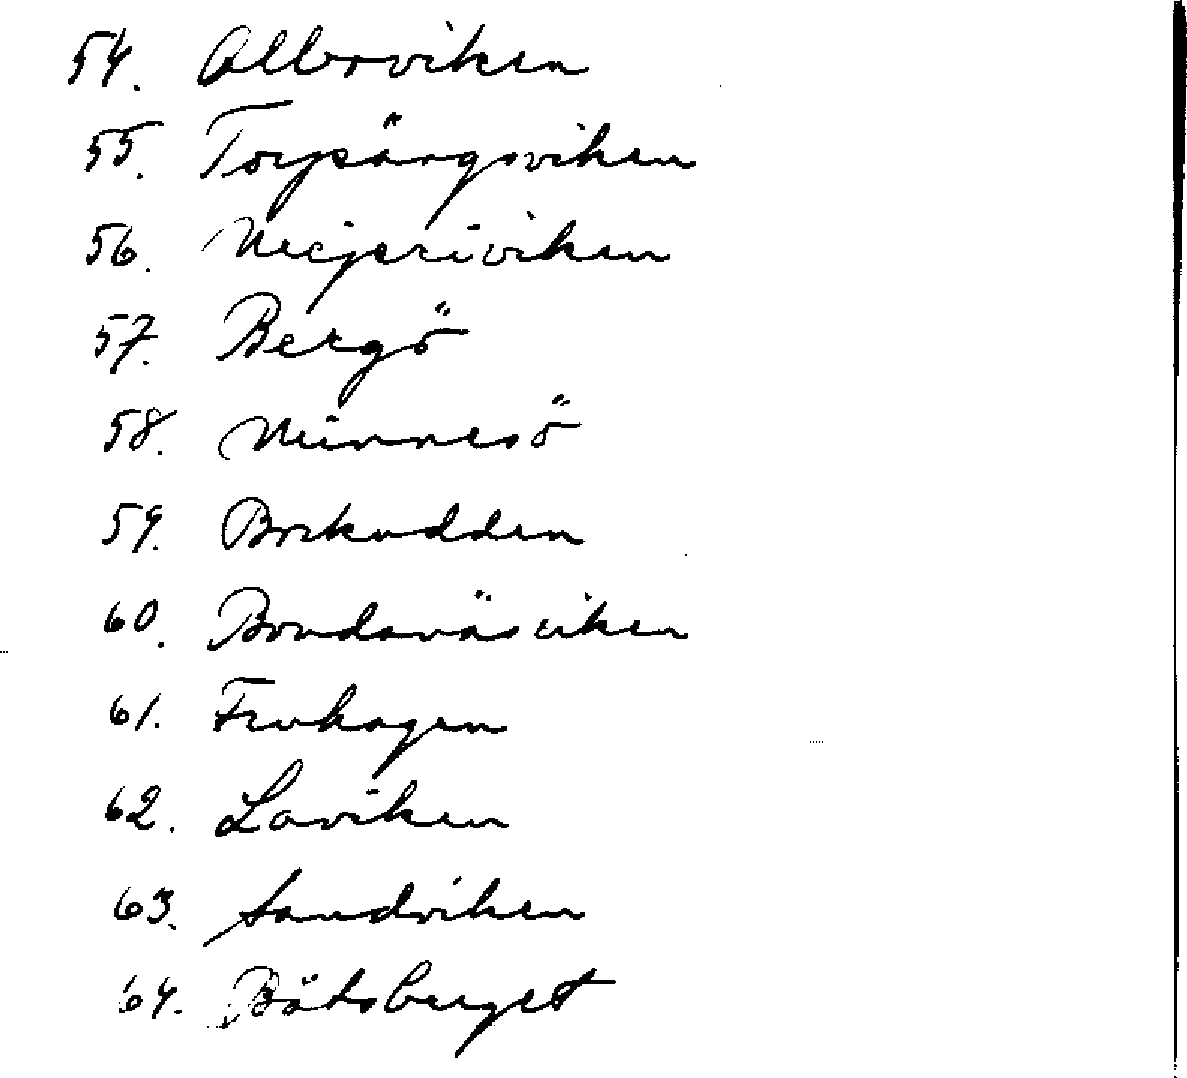 54. Alberviken
55. Torpängsviken
56. Mejeriviken
57. Bergö
58. Minnesö
59. Bockudden
60. Bondenäsviken
61. Fruhagen
62. Laviken
63. Sandviken
64. Båtsberget